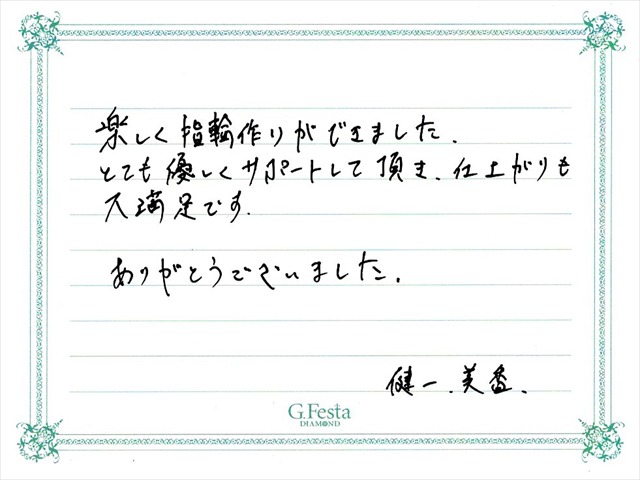 楽しく指輪作りができました.
とても優しくサポートして頂き、仕上がりも
大満足です.
ありがとうございました.
健一、美香.
G.Festa
DIAMOND